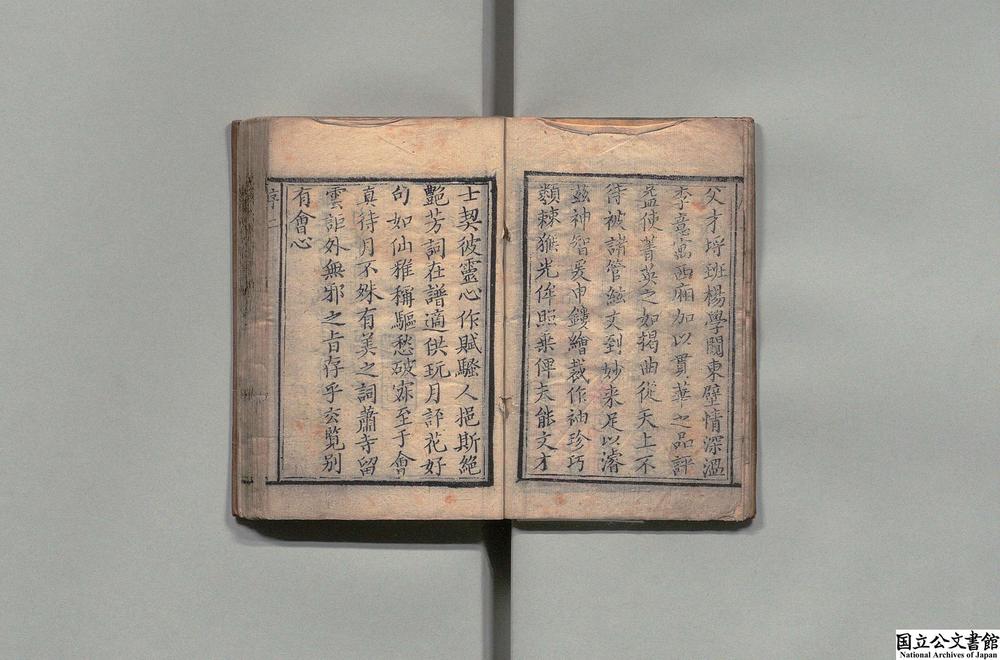 父才埒班楊學閱東壁情深溫
李意寓西廂加以貫華之品評
益使菁英之如揭曲從天上不
待被諸管絃文到妙來足以濬
茲神智爰申鏤繪裁作袖珍巧
類棘猴光侔照乗俾夫能文才
士契彼靈心作賦騷人挹斯絕
艷芳詞在譜適供玩月評花好
句如仙雅稱驅愁破寂至于會
真待月不殊有美之詞蕭寺留
雲詎外無邪之旨存乎玄覽别
有會心
序 二
国立公文書館
National Archives of Japan